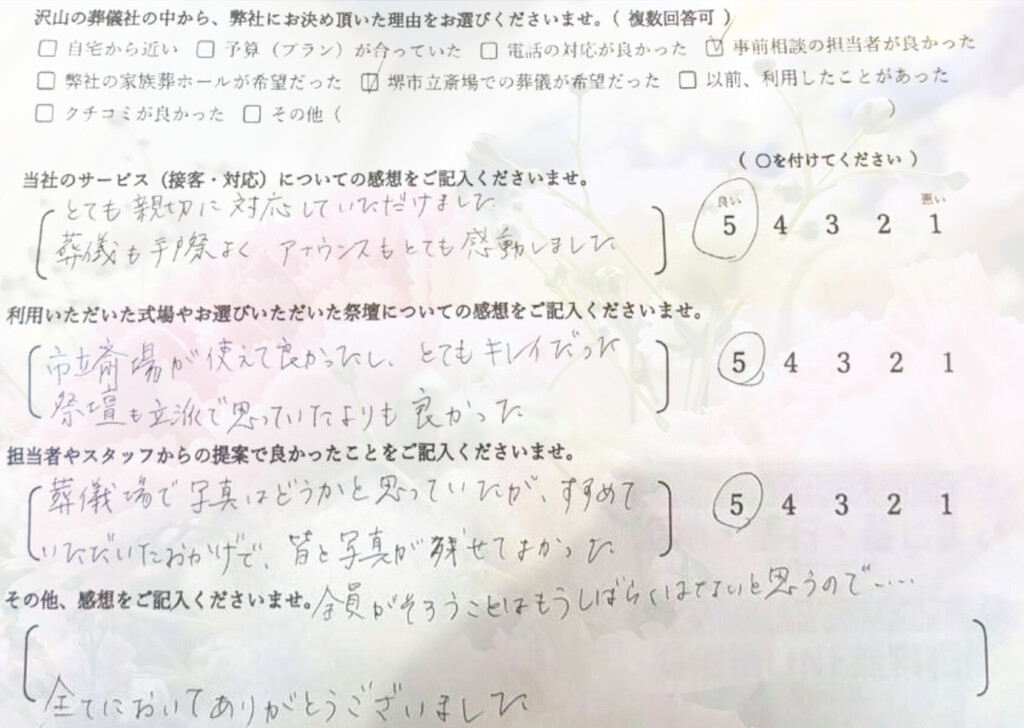 沢山の葬儀社の中から、弊社にお決め頂いた理由をお選びくださいませ。( 複数回答可 )
□ 自宅から近い □ 予算（プラン）が合っていた □ 電話の対応が良かった ☑ 事前相談の担当者が良かった
□ 弊社の家族葬ホールが希望だった ☑ 堺市立斎場での葬儀が希望だった □ 以前、利用したことがあった
□ クチコミが良かった □ その他（ ）
（ ○を付けてください ）
当社のサービス（接客・対応）についての感想をご記入くださいませ。
良い 悪い
5 4 3 2 1
とても親切に対応していただけました
葬儀も手際よく アナウンスもとても感動しました
利用いただいた式場やお選びいただいた祭壇についての感想をご記入くださいませ。
市立斎場が使えて良かったし、とてもキレイだった
5 4 3 2 1
祭壇も立派で思っていたよりも良かった
担当者やスタッフからの提案で良かったことをご記入くださいませ。
葬儀場で写真はどうかと思っていたが、すすめて
5 4 3 2 1
いただいたおかげで、皆と写真が残せてよかった
全員がそろうことはもうしばらくはてないと思うので……
その他、感想をご記入くださいませ。
全てにおいてありがとうございました